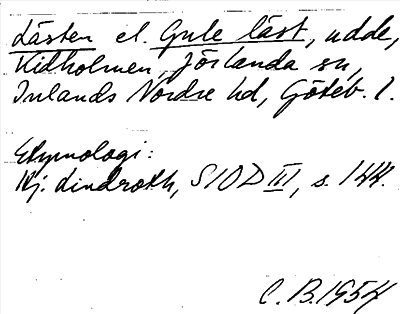 Lästen el. Gule läst, udde,
Kidholmen, Jörlanda sn,
Inlands Nordre hd, Göteb. l.
Etymologi:
Hj. Lindroth, SIOD III, s. 144.
C. B. 1954